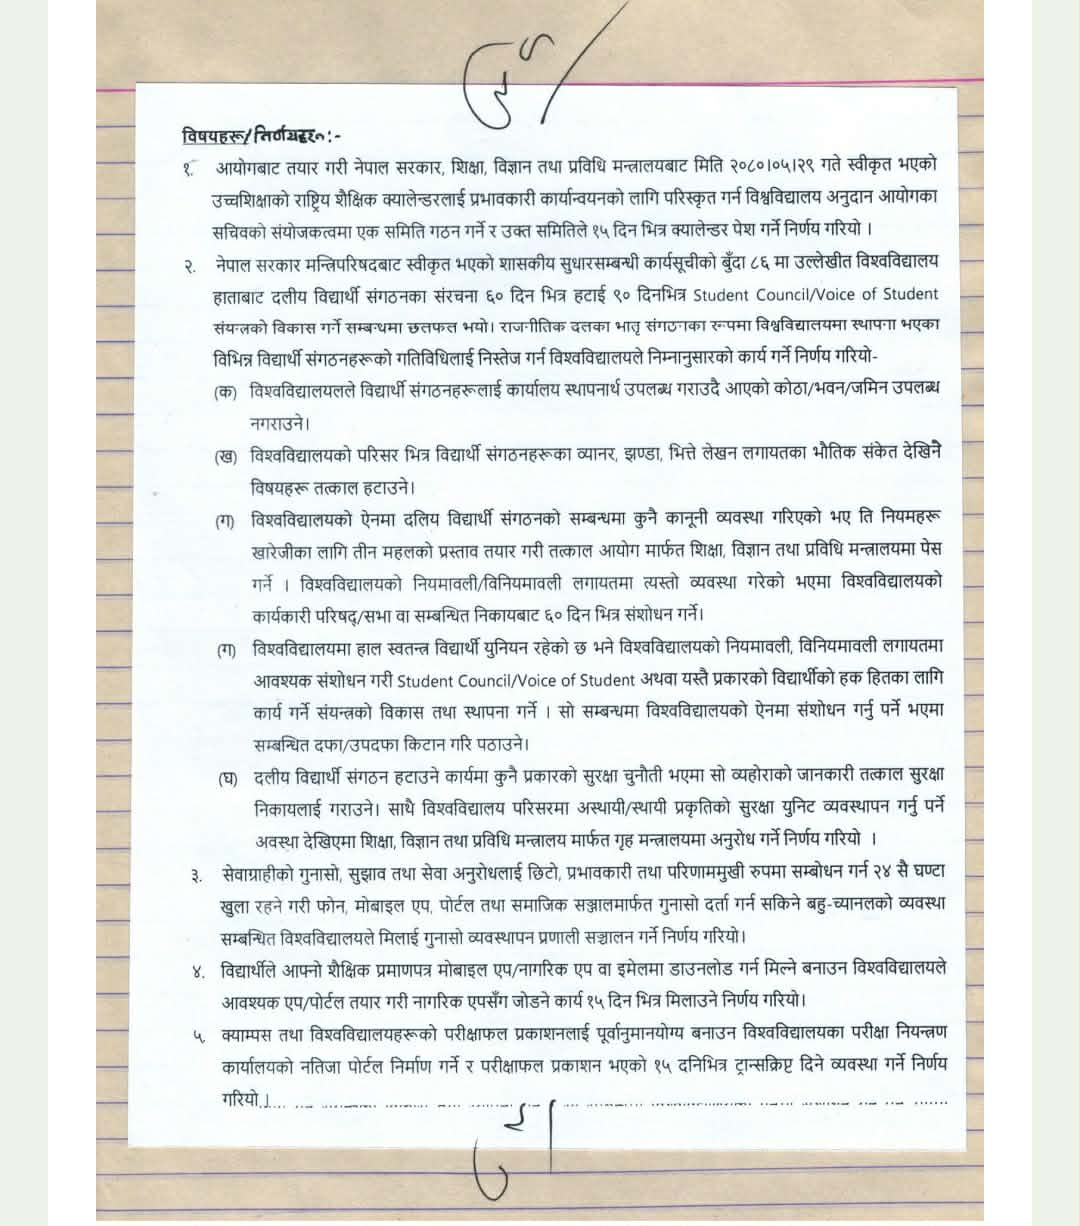 विषयहरू/निर्णयहरू:-
१. आयोगबाट तयार गरी नेपाल सरकार, शिक्षा, विज्ञान तथा प्रविधि मन्त्रालयबाट मिति २०८०।०५।२९ गते स्वीकृत भएको
उच्चशिक्षाको राष्ट्रिय शैक्षिक क्यालेन्डरलाई प्रभावकारी कार्यान्वयनको लागि परिस्कृत गर्न विश्वविद्यालय अनुदान आयोगका
सचिवको संयोजकत्वमा एक समिति गठन गर्ने र उक्त समितिले १५ दिन भित्र क्यालेन्डर पेश गर्ने निर्णय गरियो ।
२. नेपाल सरकार मन्त्रिपरिषदबाट स्वीकृत भएको शासकीय सुधारसम्बन्धी कार्यसूचीको बुँदा ८६ मा उल्लेखीत विश्वविद्यालय
हाताबाट दलीय विद्यार्थी संगठनका संरचना ६० दिन भित्र हटाई ९० दिनभित्र Student Council/Voice of Student
संयन्त्रको विकास गर्ने सम्बन्धमा छलफल भयो। राजनीतिक दलका भातृ संगठनका रूपमा विश्वविद्यालयमा स्थापना भएका
विभिन्न विद्यार्थी संगठनहरूको गतिविधिलाई निस्तेज गर्न विश्वविद्यालयले निम्नानुसारको कार्य गर्ने निर्णय गरियो-
(क) विश्वविद्यालयलले विद्यार्थी संगठनहरूलाई कार्यालय स्थापनार्थ उपलब्ध गराउदै आएको कोठा/भवन/जमिन उपलब्ध
नगराउने।
(ख) विश्वविद्यालयको परिसर भित्र विद्यार्थी संगठनहरूका व्यानर, झण्डा, भित्ते लेखन लगायतका भौतिक संकेत देखिने
विषयहरू तत्काल हटाउने।
(ग) विश्वविद्यालयको ऐनमा दलिय विद्यार्थी संगठनको सम्बन्धमा कुनै कानूनी व्यवस्था गरिएको भए ति नियमहरू
खारेजीका लागि तीन महलको प्रस्ताव तयार गरी तत्काल आयोग मार्फत शिक्षा, विज्ञान तथा प्रविधि मन्त्रालयमा पेस
गर्ने । विश्वविद्यालयको नियमावली/विनियमावली लगायतमा त्यस्तो व्यवस्था गरेको भएमा विश्वविद्यालयको
कार्यकारी परिषद्/सभा वा सम्बन्धित निकायबाट ६० दिन भित्र संशोधन गर्ने।
(ग) विश्वविद्यालयमा हाल स्वतन्त्र विद्यार्थी युनियन रहेको छ भने विश्वविद्यालयको नियमावली, विनियमावली लगायतमा
आवश्यक संशोधन गरी Student Council/Voice of Student अथवा यस्तै प्रकारको विद्यार्थीको हक हितका लागि
कार्य गर्ने संयन्त्रको विकास तथा स्थापना गर्ने । सो सम्बन्धमा विश्वविद्यालयको ऐनमा संशोधन गर्नु पर्ने भएमा
सम्बन्धित दफा/उपदफा किटान गरि पठाउने।
(घ) दलीय विद्यार्थी संगठन हटाउने कार्यमा कुनै प्रकारको सुरक्षा चुनौती भएमा सो व्यहोराको जानकारी तत्काल सुरक्षा
निकायलाई गराउने। साथै विश्वविद्यालय परिसरमा अस्थायी/स्थायी प्रकृतिको सुरक्षा युनिट व्यवस्थापन गर्नु पर्ने
अवस्था देखिएमा शिक्षा, विज्ञान तथा प्रविधि मन्त्रालय मार्फत गृह मन्त्रालयमा अनुरोध गर्ने निर्णय गरियो ।
३. सेवाग्राहीको गुनासो, सुझाव तथा सेवा अनुरोधलाई छिटो, प्रभावकारी तथा परिणाममुखी रुपमा सम्बोधन गर्न २४ सै घण्टा
खुला रहने गरी फोन, मोबाइल एप, पोर्टल तथा समाजिक सञ्जालमार्फत गुनासो दर्ता गर्न सकिने बहु-च्यानलको व्यवस्था
सम्बन्धित विश्वविद्यालयले मिलाई गुनासो व्यवस्थापन प्रणाली सञ्चालन गर्ने निर्णय गरियो।
४. विद्यार्थीले आफ्नो शैक्षिक प्रमाणपत्र मोबाइल एप/नागरिक एप वा इमेलमा डाउनलोड गर्न मिल्ने बनाउन विश्वविद्यालयले
आवश्यक एप/पोर्टल तयार गरी नागरिक एपसँग जोडने कार्य १५ दिन भित्र मिलाउने निर्णय गरियो।
५. क्याम्पस तथा विश्वविद्यालयहरूको परीक्षाफल प्रकाशनलाई पूर्वानुमानयोग्य बनाउन विश्वविद्यालयका परीक्षा नियन्त्रण
कार्यालयको नतिजा पोर्टल निर्माण गर्ने र परीक्षाफल प्रकाशन भएको १५ दनिभित्र ट्रान्सक्रिप्ट दिने व्यवस्था गर्ने निर्णय
गरियो ।